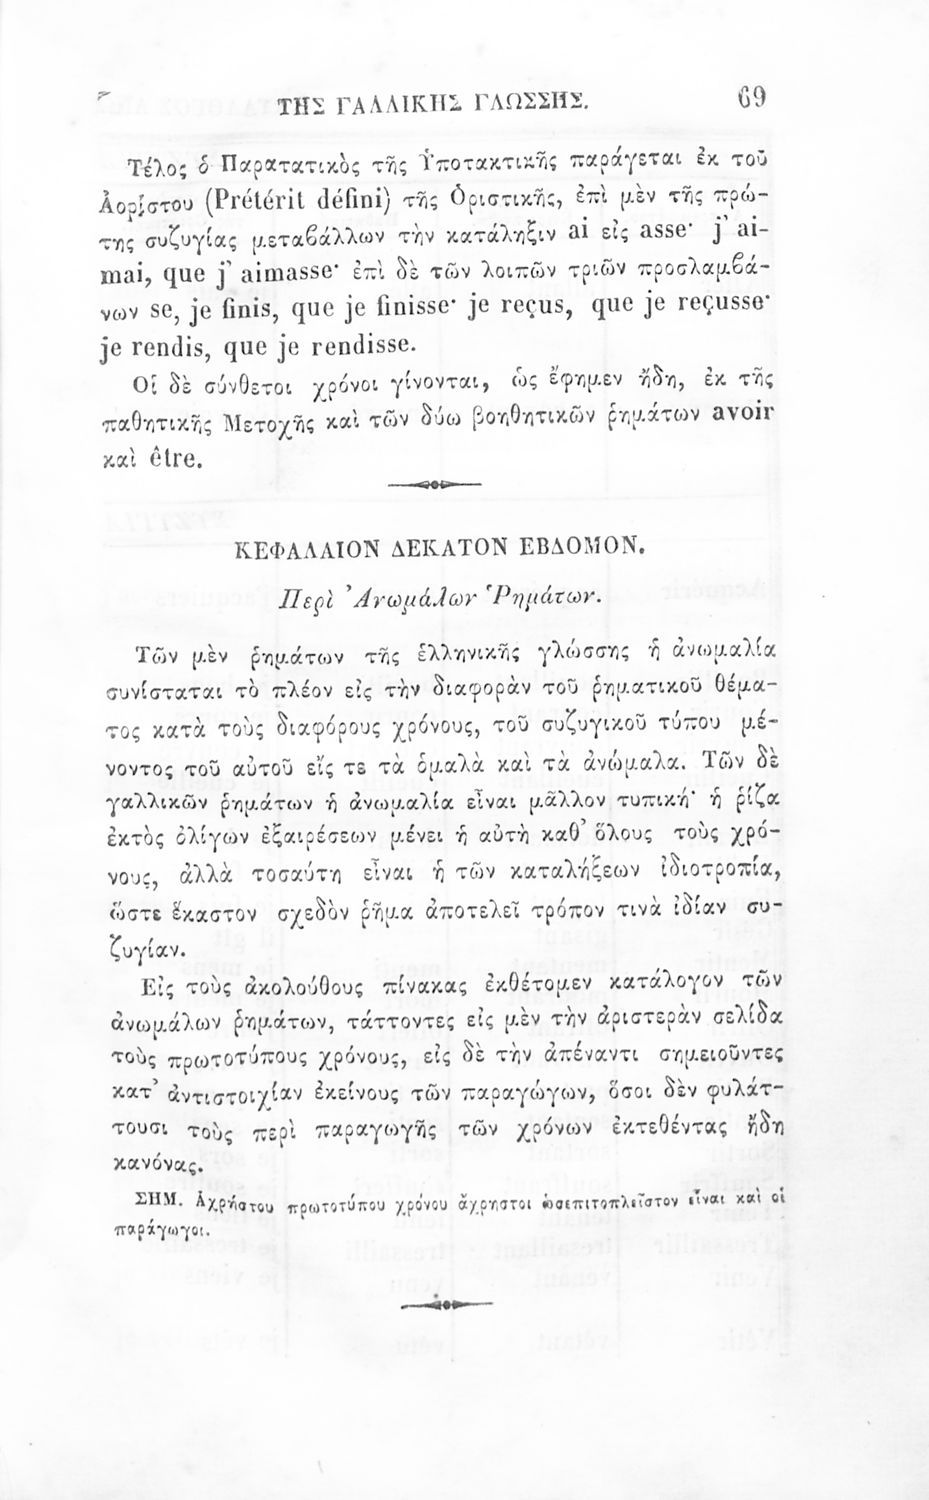 ΤΗΣ ΓΑΛΛΙΚΗΣ ΓΛΩΣΣΗΣ. 69
Τέλος ὁ Παρατατικὸς τῆς Ὑποτακτικῆς παράγεται ἐκ τοῦ
Ἀορίστου (Prétérit défini) τῆς Ὁριστικῆς, ἐπὶ μὲν τῆς πρώ-
της συζυγίας μεταβάλλων τὴν κατάληξιν ai εἰς asse· j' ai-
mai, que j' aimasse· ἐπὶ δὲ τῶν λοιπῶν τριῶν προσλαμβά-
νων se, je finis, que je finisse· je reçus, que je reçusse·
je rendis, que je rendisse.
Οἱ δὲ σύνθετοι χρόνοι γίνονται, ὡς ἔφημεν ἤδη, ἐκ τῆς
παθητικῆς Μετοχῆς καὶ τῶν δύω βοηθητικῶν ῥημάτων avoir
καὶ être.
ΚΕΦΑΛΑΙΟΝ ΔΕΚΑΤΟΝ ΕΒΔΟΜΟΝ.
Περὶ Ἀνωμάλων Ῥημάτων.
Τῶν μὲν ῥημάτων τῆς ἑλληνικῆς γλώσσης ἡ ἀνωμαλία
συνίσταται τὸ πλέον εἰς τὴν διαφορὰν τοῦ ῥηματικοῦ θέμα-
τος κατὰ τοὺς διαφόρους χρόνους, τοῦ συζυγικοῦ τύπου μέ-
νοντος τοῦ αὐτοῦ εἴς τε τὰ ὁμαλὰ καὶ τὰ ἀνώμαλα. Τῶν δὲ
γαλλικῶν ῥημάτων ἡ ἀνωμαλία εἶναι μᾶλλον τυπική· ἡ ῥίζα
ἐκτὸς ὀλίγων ἐξαιρέσεων μένει ἡ αὐτὴ καθ' ὅλους τοὺς χρό-
νους, ἀλλὰ τοσαύτη εἶναι ἡ τῶν καταλήξεων ἰδιοτροπία,
ὥστε ἕκαστον σχεδὸν ῥῆμα ἀποτελεῖ τρόπον τινὰ ἰδίαν συ-
ζυγίαν.
Εἰς τοὺς ἀκολούθους πίνακας ἐκθέτομεν κατάλογον τῶν
ἀνωμάλων ῥημάτων, τάττοντες εἰς μὲν τὴν ἀριστερὰν σελίδα
τοὺς πρωτοτύπους χρόνους, εἰς δὲ τὴν ἀπέναντι σημειοῦντες
κατ' ἀντιστοιχίαν ἐκείνους τῶν παραγώγων, ὅσοι δὲν φυλάτ-
τουσι τοὺς περὶ παραγωγῆς τῶν χρόνων ἐκτεθέντας ἤδη
κανόνας.
ΣΗΜ. Ἀχρήστου πρωτοτύπου χρόνου ἄχρηστοι ὡσεπιτοπλεῖστον εἶναι καὶ οἱ
παράγωγοι.